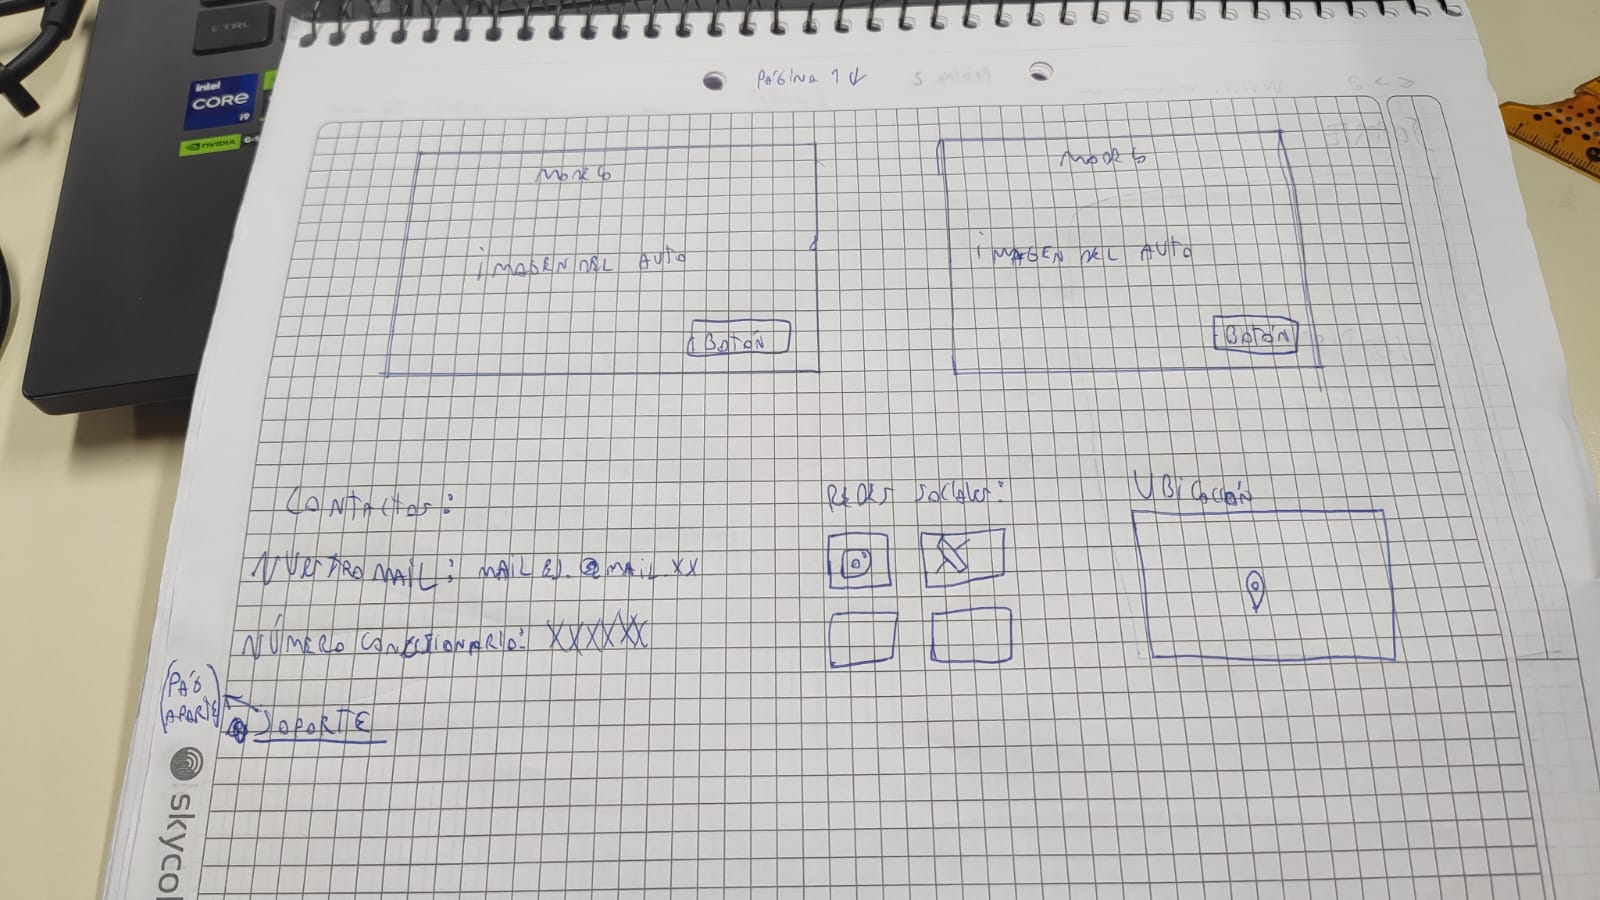 CTRL
intel
CORE
i9
NVIDIA
PÁGINA 1
MODELO
IMAGEN DEL AUTO
BOTÓN
MODELO
IMAGEN DEL AUTO
BOTÓN
CONTACTOS:
NUESTRO MAIL: MAIL EJ. @MAIL.XX
NÚMERO CONCESIONARIO: XXXXXX
(PÁG APARTE)
SOPORTE
REDES SOCIALES:
UBICACIÓN
skycol